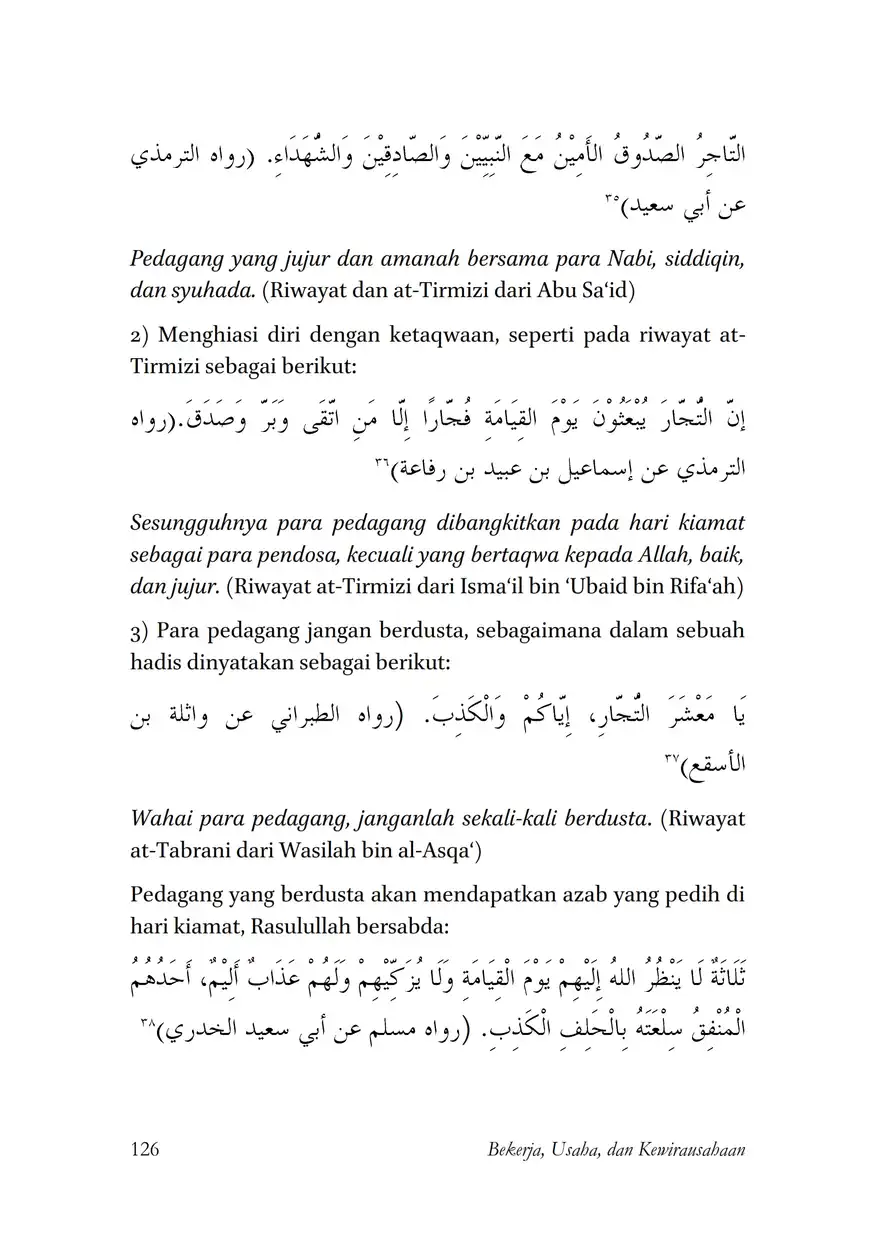 التَّاجِرُ الصَّدُوقُ الأَمِيْنُ مَعَ النَّبِيِّيْنَ وَالصَّادِقِيْنَ وَالشُّهَدَاءِ. (رواه الترمذي
عن أبي سعيد)٣٥
Pedagang yang jujur dan amanah bersama para Nabi, siddiqin,
dan syuhada. (Riwayat dan at-Tirmizi dari Abu Sa‘id)
2) Menghiasi diri dengan ketaqwaan, seperti pada riwayat at-
Tirmizi sebagai berikut:
إِنَّ التُّجَّارَ يُبْعَثُوْنَ يَوْمَ القِيَامَةِ فُجَّارًا إِلَّا مَنِ اتَّقَى وَبَرَّ وَصَدَقَ.(رواه
الترمذي عن إسماعيل بن عبيد بن رفاعة)٣٦
Sesungguhnya para pedagang dibangkitkan pada hari kiamat
sebagai para pendosa, kecuali yang bertaqwa kepada Allah, baik,
dan jujur. (Riwayat at-Tirmizi dari Isma‘il bin ‘Ubaid bin Rifa‘ah)
3) Para pedagang jangan berdusta, sebagaimana dalam sebuah
hadis dinyatakan sebagai berikut:
يَا مَعْشَرَ التُّجَّارِ، إِيَّاكُمْ وَالْكَذِبَ. (رواه الطبراني عن واثلة بن
الأسقع)٣٧
Wahai para pedagang, janganlah sekali-kali berdusta. (Riwayat
at-Tabrani dari Wasilah bin al-Asqa‘)
Pedagang yang berdusta akan mendapatkan azab yang pedih di
hari kiamat, Rasulullah bersabda:
ثَلَاثَةٌ لَا يَنْظُرُ اللهُ إِلَيْهِمْ يَوْمَ الْقِيَامَةِ وَلَا يُزَكِّيْهِمْ وَلَهُمْ عَذَابٌ أَلِيْمٌ، أَحَدُهُمُ
الْمُنْفِقُ سِلْعَتَهُ بِالْحَلِفِ الْكَذِبِ. (رواه مسلم عن أبي سعيد الخدري)٣٨
126 Bekerja, Usaha, dan Kewirausahaan